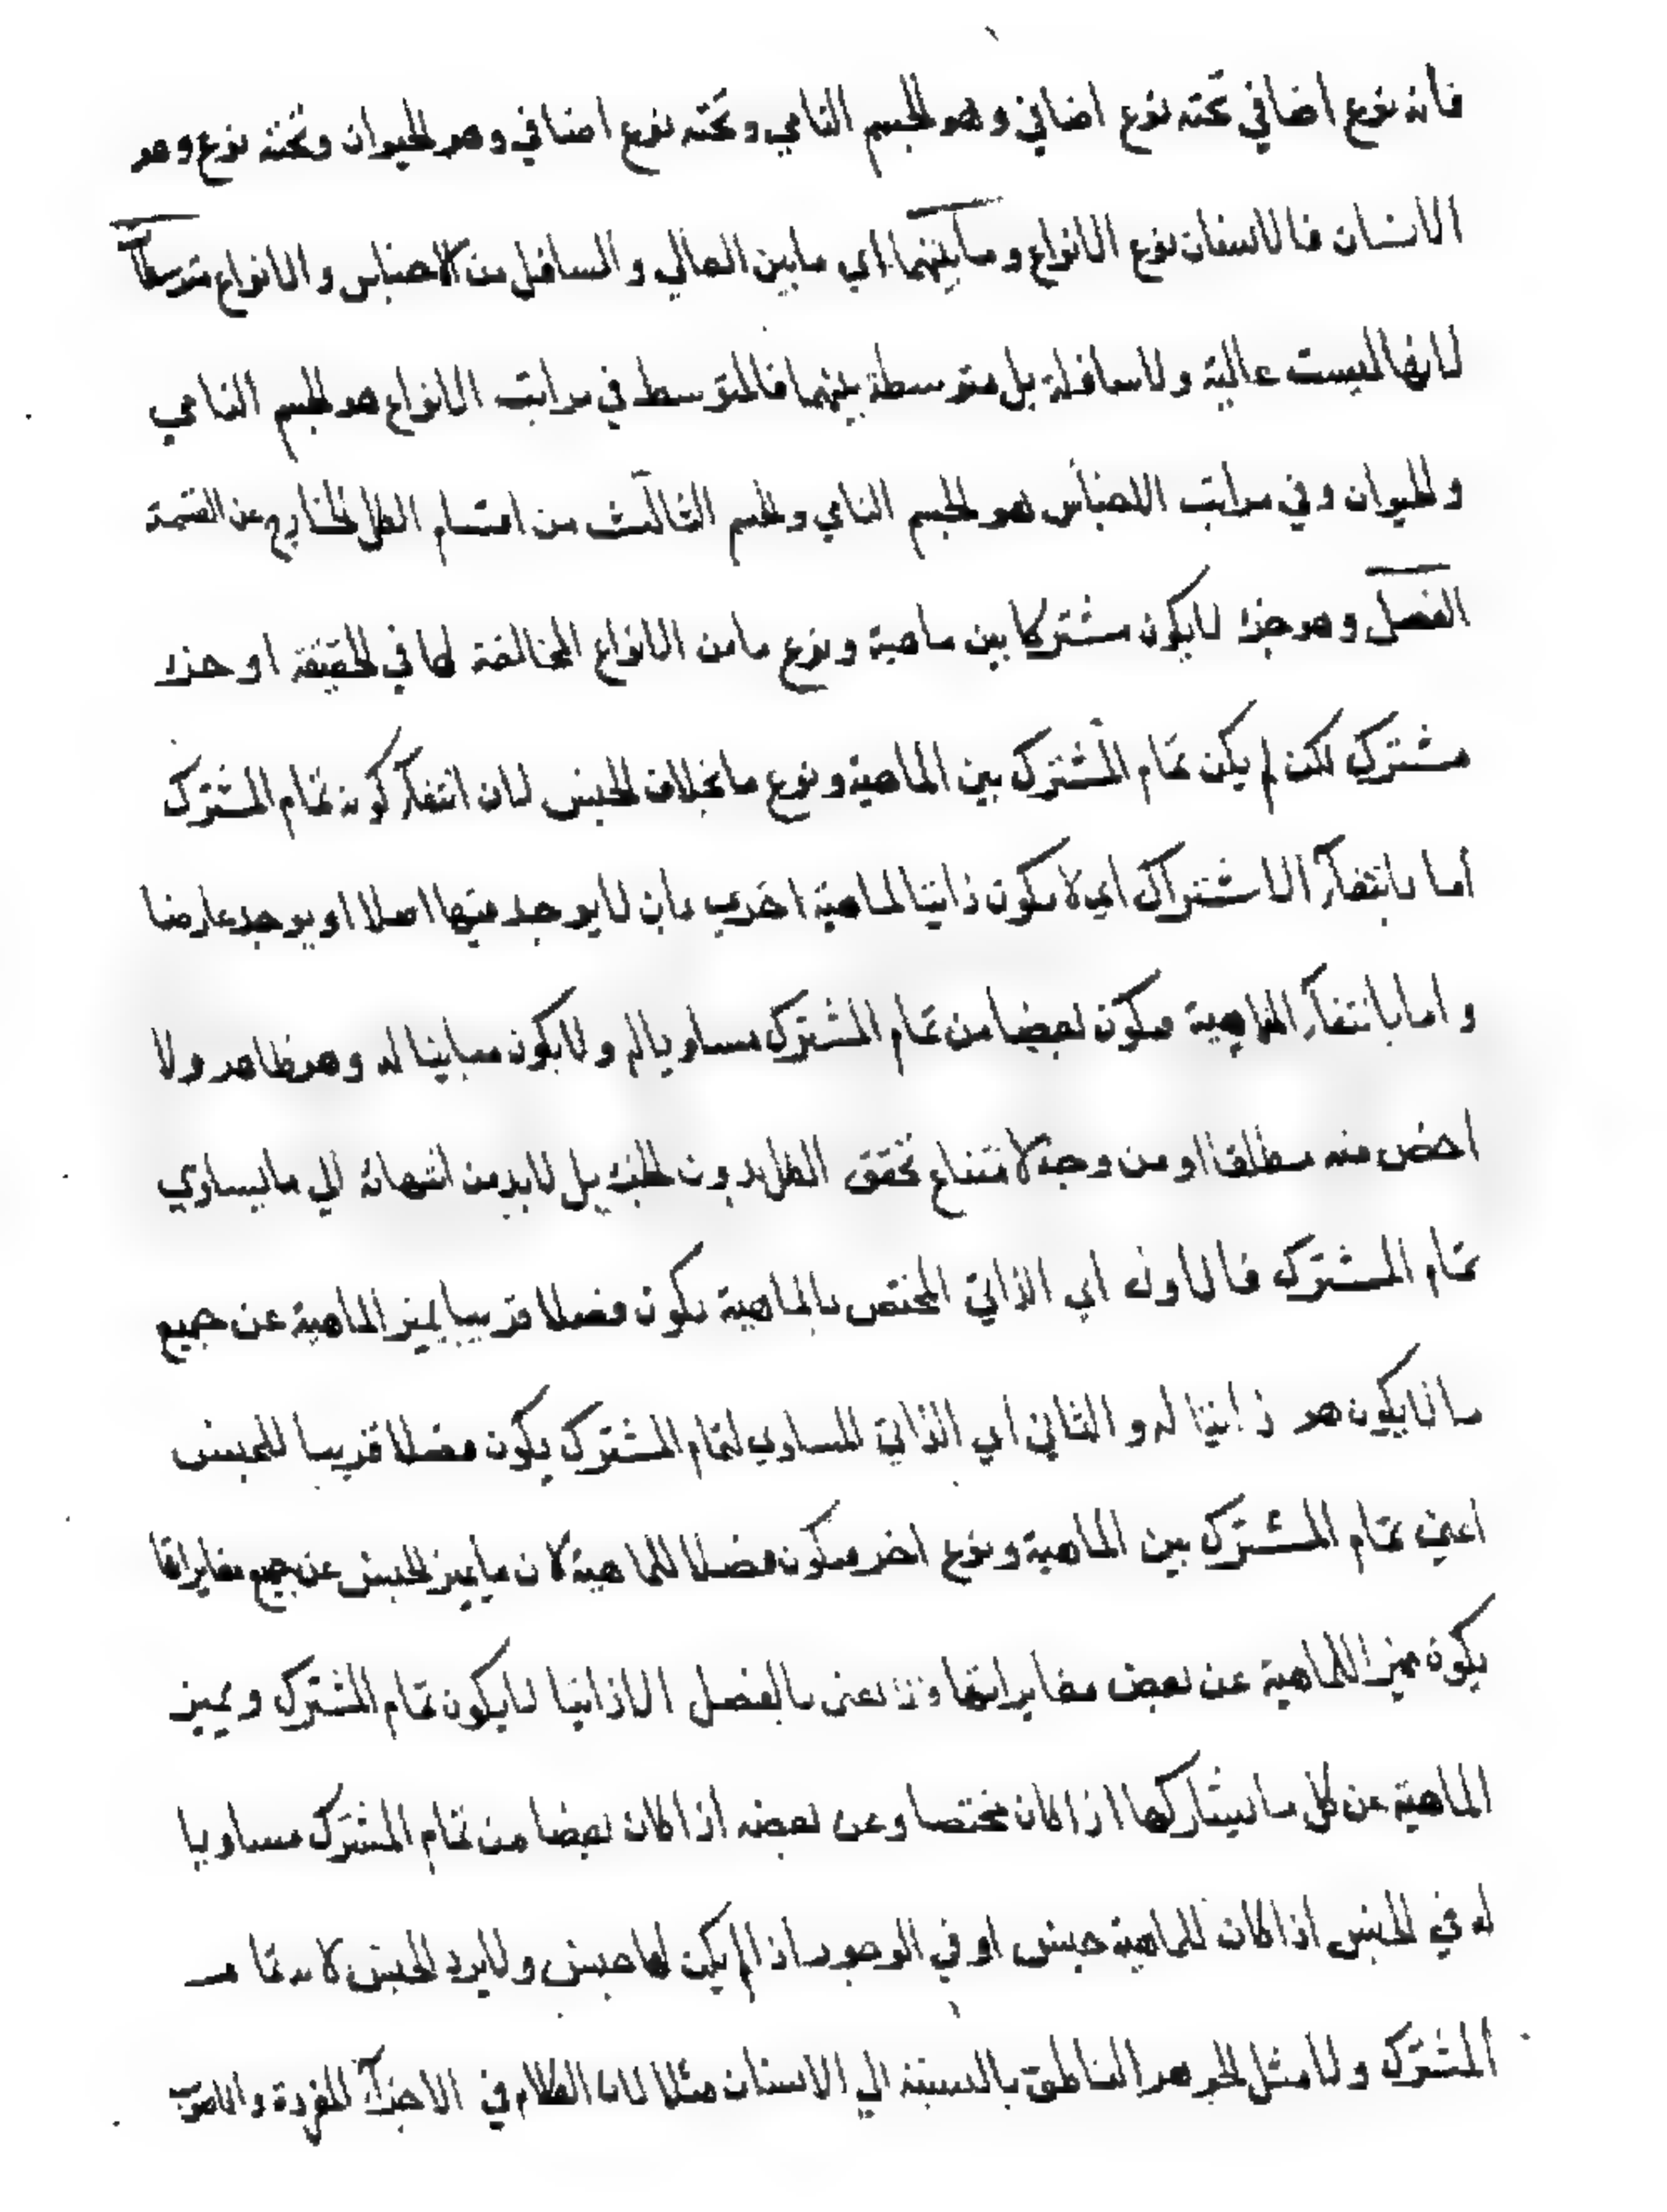 فانه نوع اضافي تحته نوع اضافي وهو الجسم النامي وتحته نوع اضافي وهو الحيوان وتحته نوع وهو
الانسان فالانسان نوع الانواع وما بينهما اي ما بين العالي والسافل من الاجناس والانواع متوسطا
لانها ليست عالية ولا سافلة بل متوسطة بينهما فالمتوسط في مراتب الانواع هو الجسم النامي
والحيوان وفي مراتب الاجناس هو الجسم النامي والجسم الثالث من اقسام الكل الخارج عن القسمة
الفصل وهو جزء لا يكون مشتركا بين ماهية ونوع ما من الانواع المخالفة لها في الحقيقة او جزء
مشترك لكن لم يكن تمام المشترك بين الماهية ونوع ما بخلاف الجنس لان انتفاء كونه تمام المشترك
أما بانتفاء الاشتراك اي لا يكون ذاتيا لماهية اخري بان لا يوجد فيها اصلا او يوجد عارضا
واما بانتفاء التمامية فيكون بعضا من تمام المشترك مساويا له ولا يكون مباينا له وهو ظاهر ولا
اخص منه مطلقا او من وجه لامتناع تحقق الكل بدون الجزء بل لا بد من انتهائه الي ما يساوي
تمام المشترك فالاول اي الذاتي المختص بالماهية يكون فصلا قريبا يميز الماهية عن جميع
ما لا يكون هو ذاتيا له والثاني اي الذاتي المساوي لتمام المشترك يكون فصلا قريبا للجنس
اعني تمام المشترك بين الماهية ونوع اخر فيكون فصلا للماهية لان ما يميز الجنس عن جميع مغايراتها
يكون مميزا للماهية عن بعض مغايراتها ولا نعني بالفصل الا ذاتيا لا يكون تمام المشترك ويميز
الماهية عن كل ما يشاركها اذا كان مختصا وعن بعضه اذا كان بعضا من تمام المشترك مساويا
له في الجنس اذا كان للماهية جنس او في الوجود اذا لم يكن لها جنس ولا يرد الجنس لانه تمام
المشترك ولا مثل الجوهر الناطق بالنسبة الي الانسان مثلا لان الكلام في الاجزاء المفردة